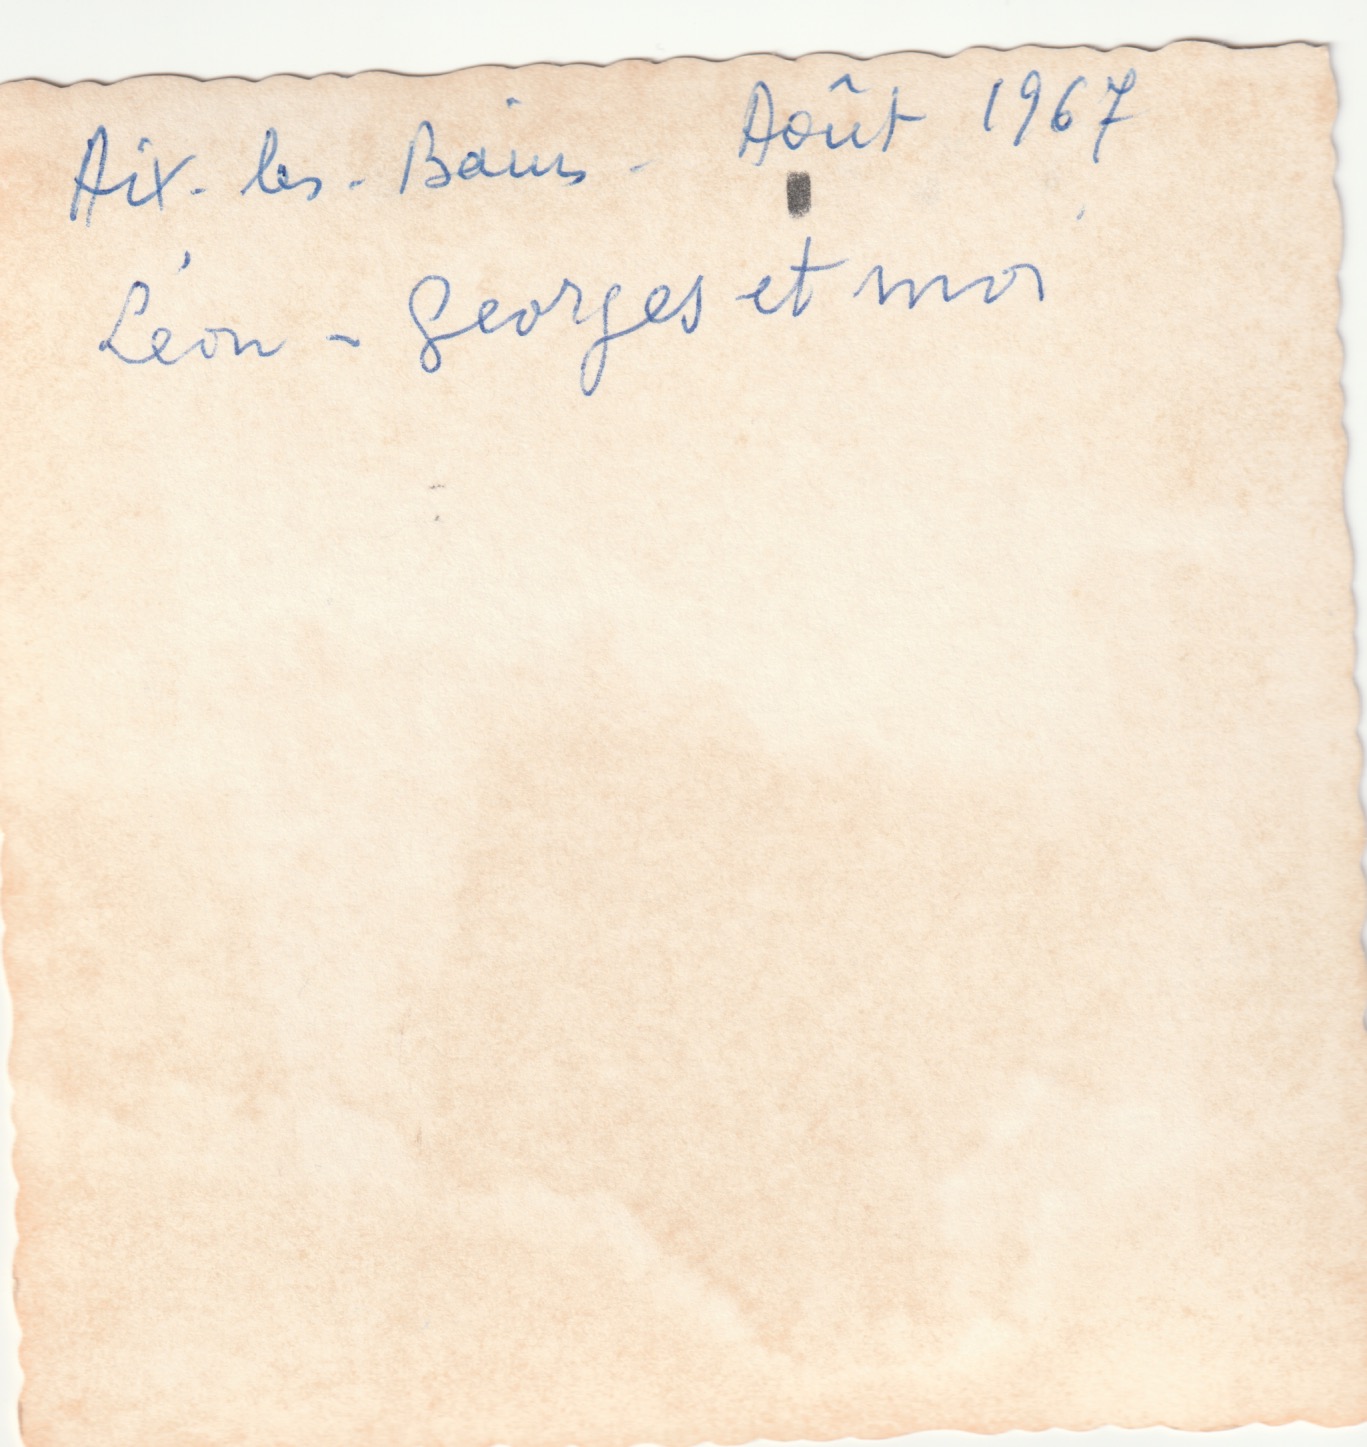 Aix-les-Bains - Août 1967
Léon - Georges et moi